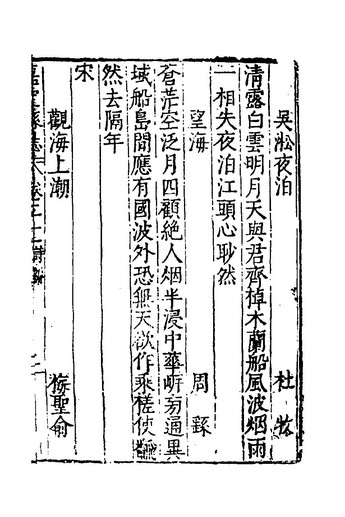 吳淞夜泊 杜牧
清露白雲明月天與君齊棹木蘭船風波烟雨
一相失夜泊江頭心耿然
望海 周繇
蒼茫空泛日四顧絕人烟半浸中華岸旁通異
域船島間應有國波外恐無天欲作乘槎使翻
然去隔年
宋
觀海上潮 聖俞